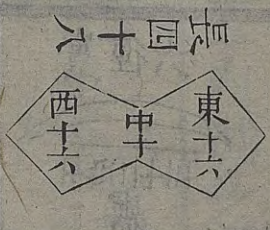 長四十八
東十六
中十
西十六